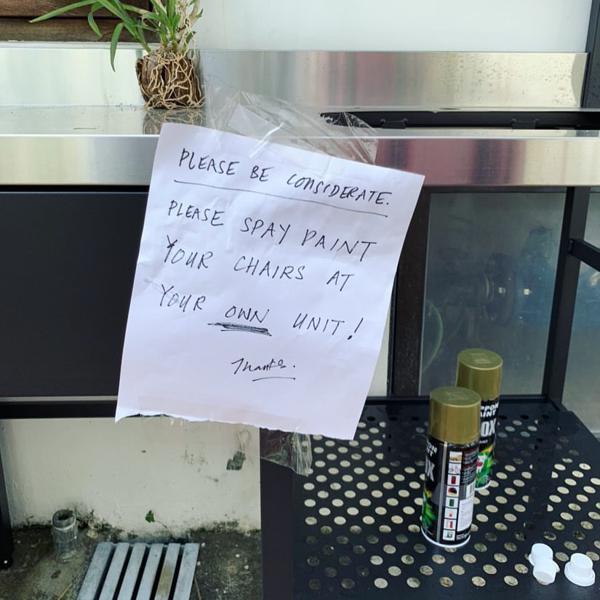 PLEASE BE CONSIDERATE.
PLEASE SPAY PAINT
YOUR CHAIRS AT
YOUR OWN UNIT!
Thanks.
OX